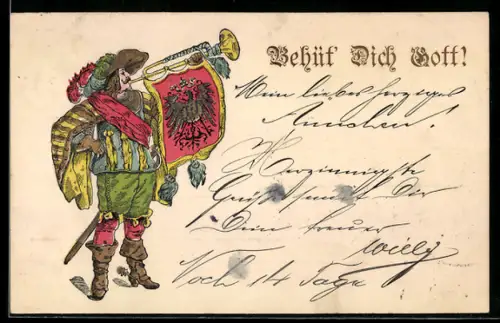 Behüt' Dich Gott!
Mein liebes herziges
Annchen!
Herzinnigste
Grüße sendet Dir
Dein treuer
Willy
Noch 14 Tage